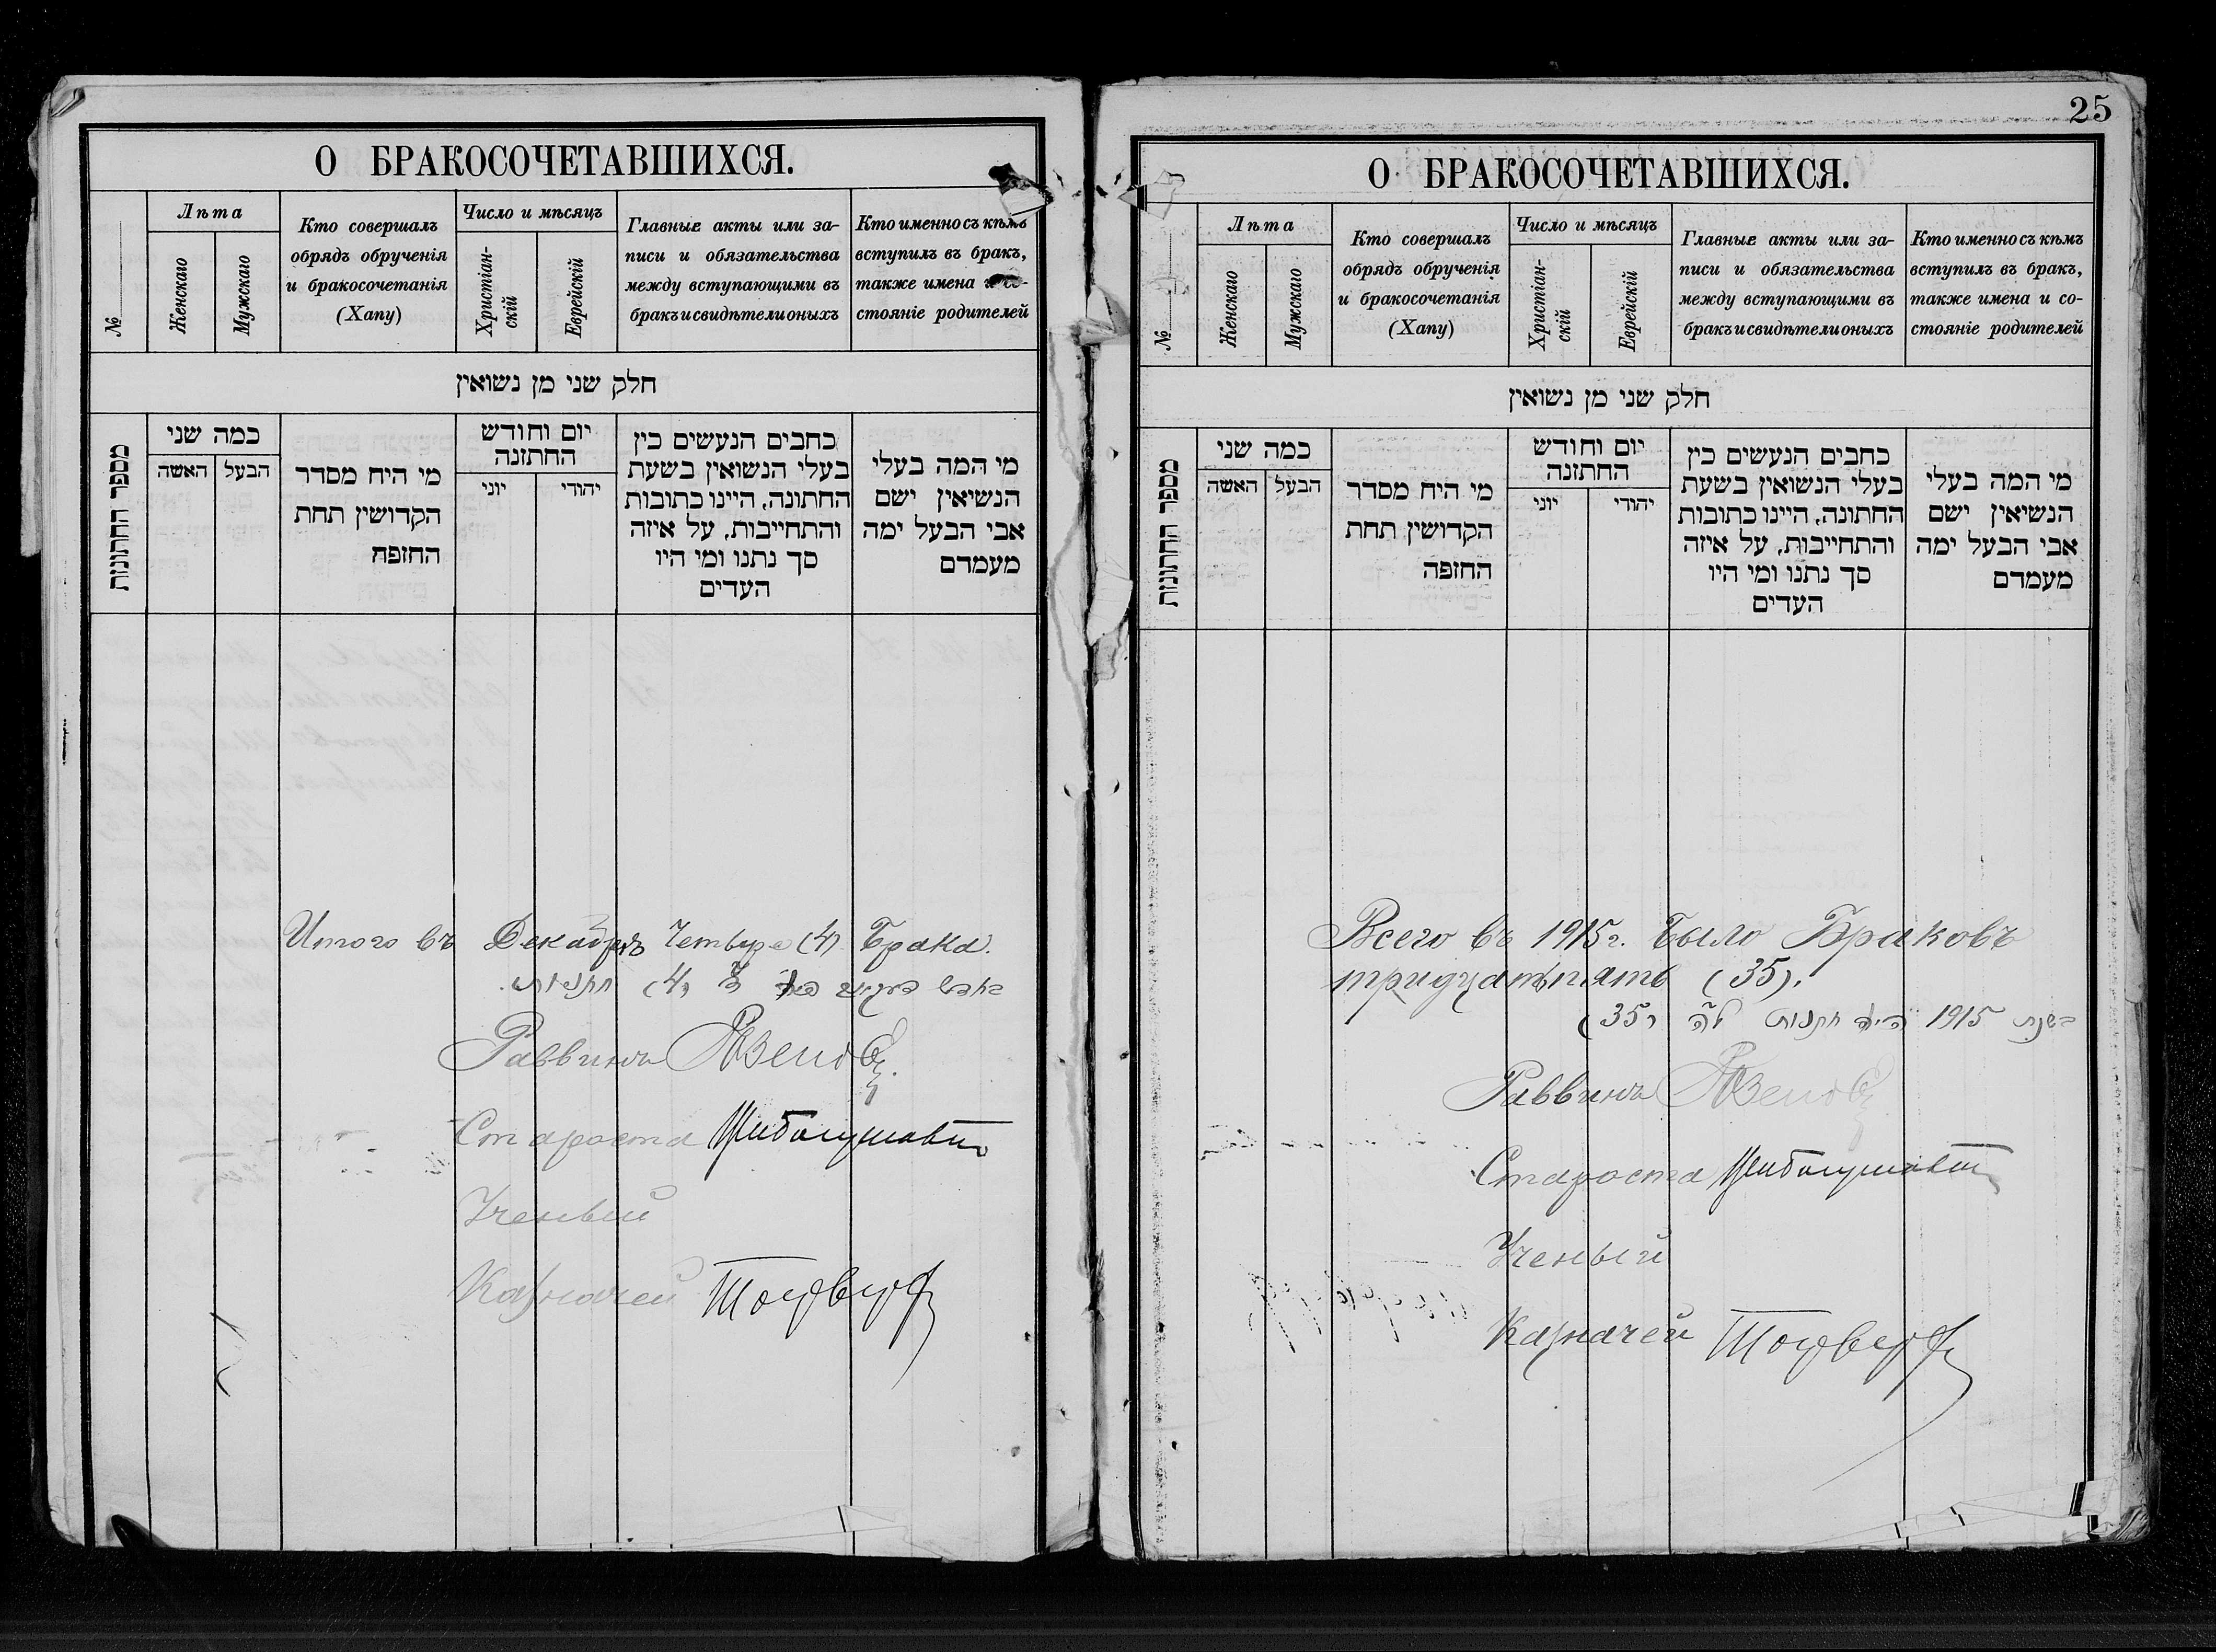 О БРАКОСОЧЕТАВШИХСЯ.
№
Лѣта
Женскаго
Мужскаго
Кто совершалъ
обрядъ обрученія
и бракосочетанія
(Хапу)
Число и мѣсяцъ
Христіан-
скій
Еврейскій
Главные акты или за-
писи и обязательства
между вступающими въ
бракъ и свидѣтели оныхъ
Кто именно съ кѣмъ
вступилъ въ бракъ,
также имена и со-
стояніе родителей
חלק שני מן נשואין
מספר החתונות
כמה שני
האשה
הבעל
מי היח מסדר
הקדושין תחת
החופה
יום וחודש
החתונה
יוני
יהודי
כתבים הנעשים בין
בעלי הנשואין בשעת
החתונה, היינו כתובות
והתחייבות, על איזה
סך נתנו ומי היו
העדים
מי המה בעלי
הנשיאין ישם
אבי הבעל ימה
מעמדם
Итого въ Декабрѣ Четыре (4) Брака.
בחדש דעקאבר היו ד' (4) חתנות.
Раввинъ
Староста
Ученый
Казначей
25
О БРАКОСОЧЕТАВШИХСЯ.
№
Лѣта
Женскаго
Мужскаго
Кто совершалъ
обрядъ обрученія
и бракосочетанія
(Хапу)
Число и мѣсяцъ
Христіан-
скій
Еврейскій
Главные акты или за-
писи и обязательства
между вступающими въ
бракъ и свидѣтели оныхъ
Кто именно съ кѣмъ
вступилъ въ бракъ,
также имена и со-
стояніе родителей
חלק שני מן נשואין
מספר החתונות
כמה שני
האשה
הבעל
מי היח מסדר
הקדושין תחת
החופה
יום וחודש
החתונה
יוני
יהודי
כתבים הנעשים בין
בעלי הנשואין בשעת
החתונה, היינו כתובות
והתחייבות, על איזה
סך נתנו ומי היו
העדים
מי המה בעלי
הנשיאין ישם
אבי הבעל ימה
מעמדם
Всего въ 1915 г. было Браковъ
тридцать пять (35).
בשנת 1915 היו חתנות ל"ה (35)
Раввинъ
Староста
Ученый
Казначей